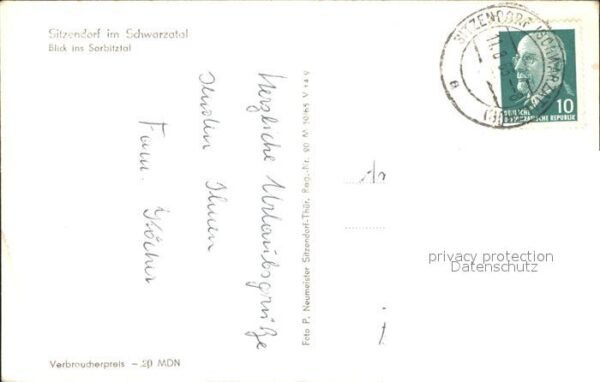 Sitzendorf im Schwarzatal
Blick ins Sorbitztal
Herzliche Urlaubsgrüße
senden Ihnen
Fam. Köcher
Foto P. Neumeister Sitzendorf-Thür. Reg.-Nr. 20 M 10/65 V 14 9
Verbraucherpreis – 20 MDN
SITZENDORF (SCHWARZATAL)
10
DEUTSCHE
DEMOKRATISCHE REPUBLIK
privacy protection
Datenschutz